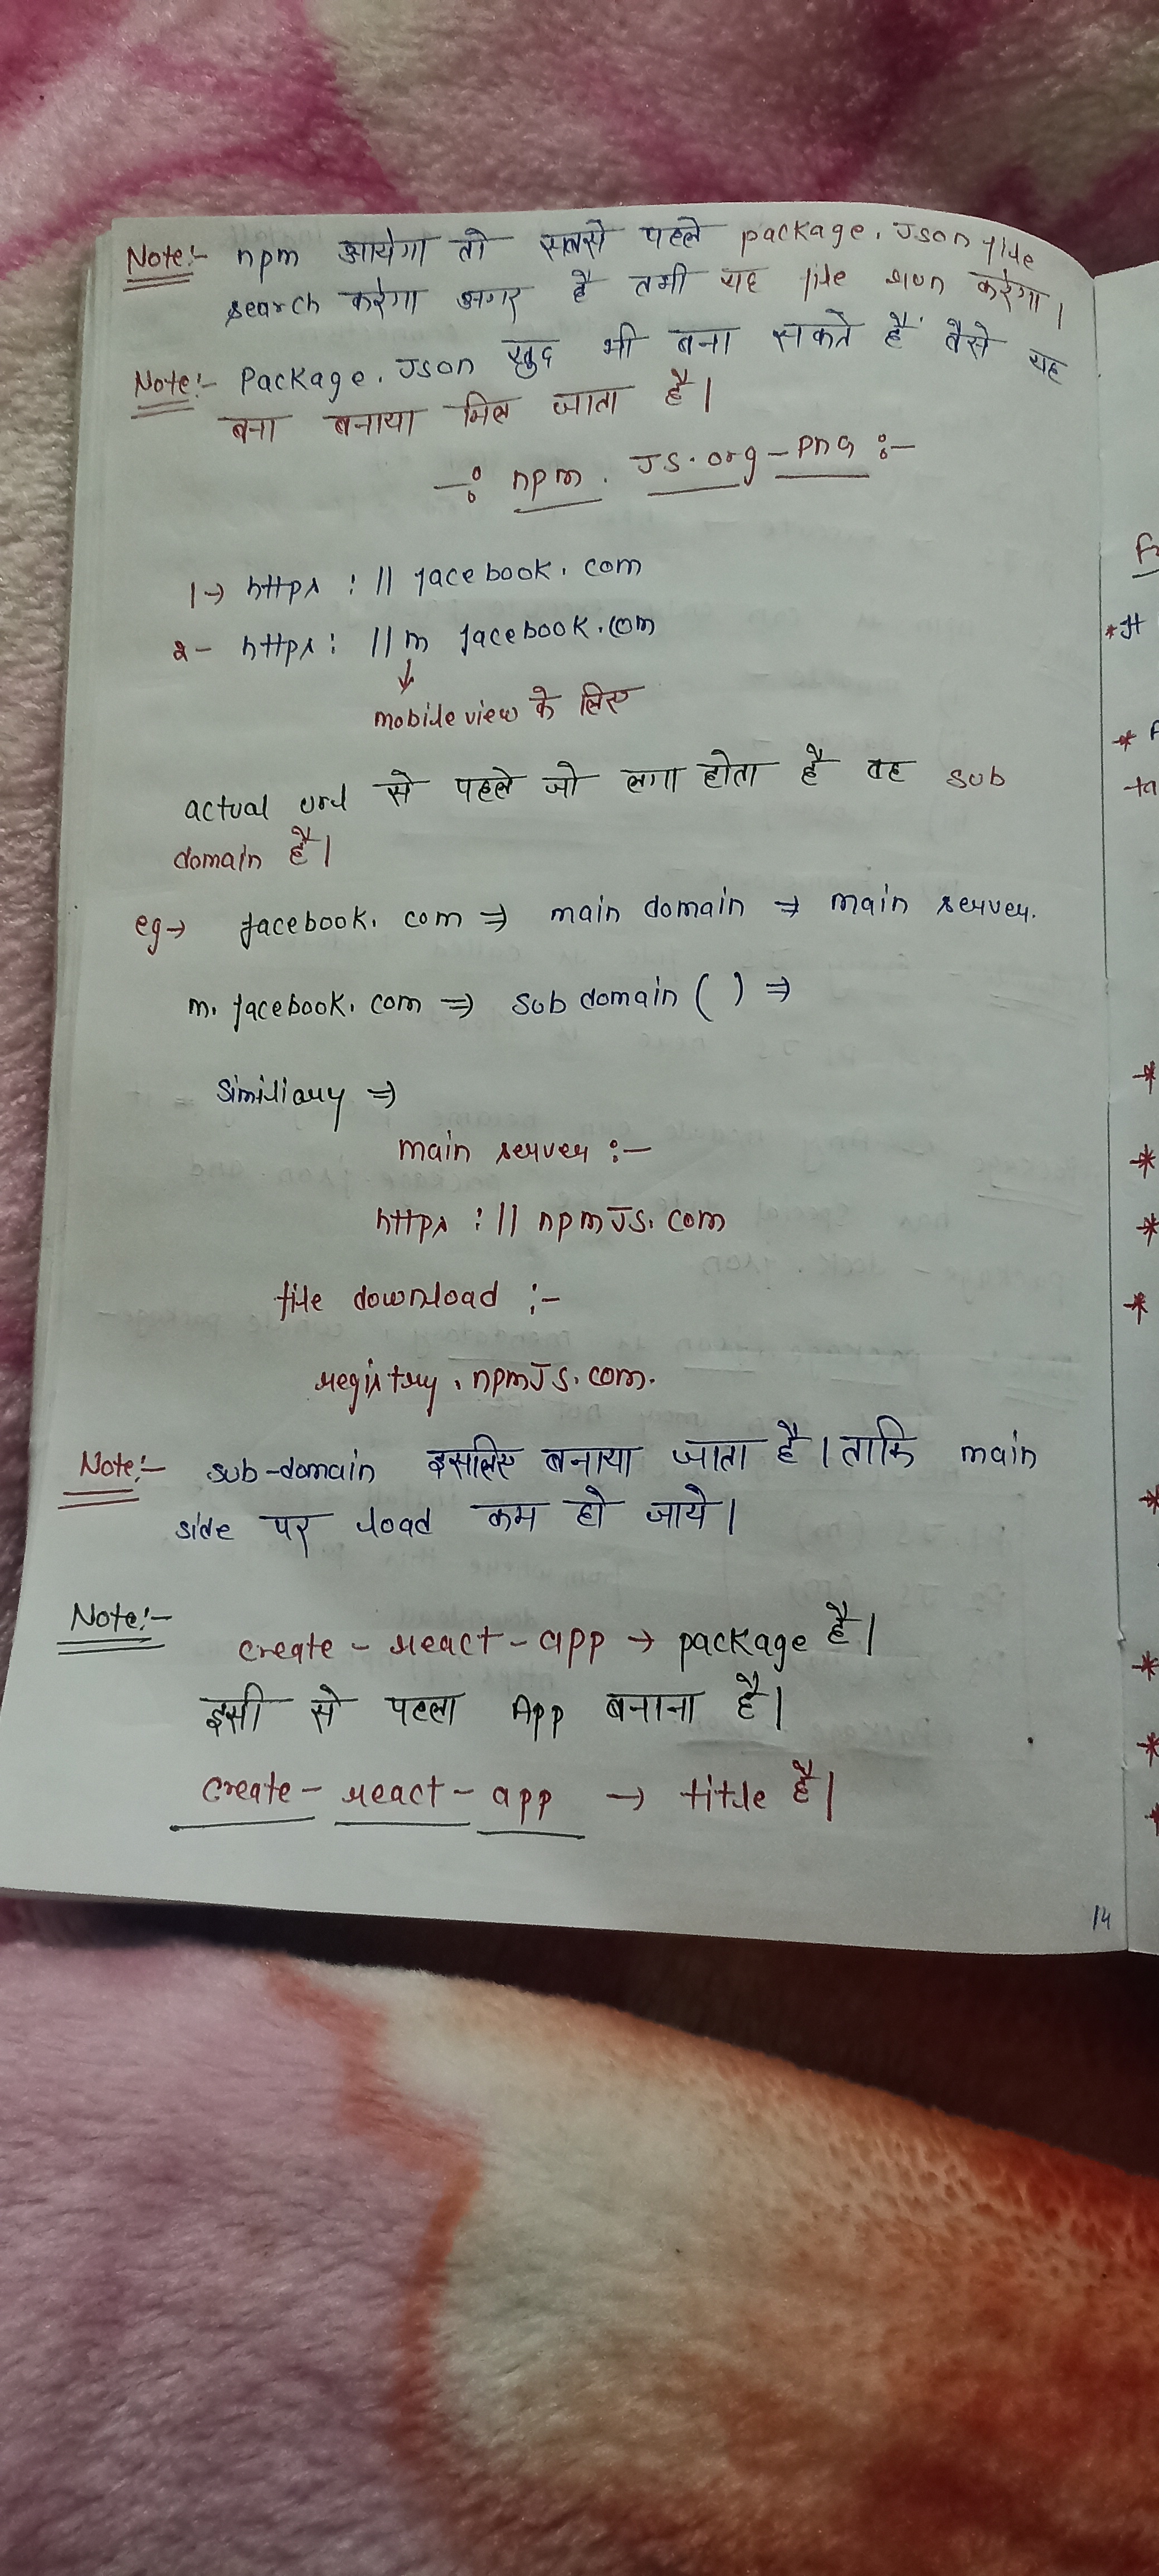 Note:- npm आयेगा तो सबसे पहले package. Json file
search करेगा अगर है तभी यह file run करेगा।
Note:- Package. Json खुद भी बना सकते हैं वैसे यह
बना बनाया मिल जाता है।
-: npm. JS.org - png :-
1→ https : // facebook. com
2- https: // m facebook.com
↓
mobile view के लिए
actual url से पहले जो लगा होता है वह sub
domain है।
eg→ facebook. com ⇒ main domain ⇒ main server.
m. facebook. com ⇒ Sub domain ( ) ⇒
Similiary ⇒
main server :-
https : // npmJs. com
file download :-
registry. npmJs. com.
Note:- sub-domain इसलिए बनाया जाता है। ताकि main
side पर load कम हो जाये।
Note:-
create - react - app → package है।
इसी से पहला App बनाना है।
create - react - app → title है।
14
* It
*
ta
*
*
*
*
*
*
*